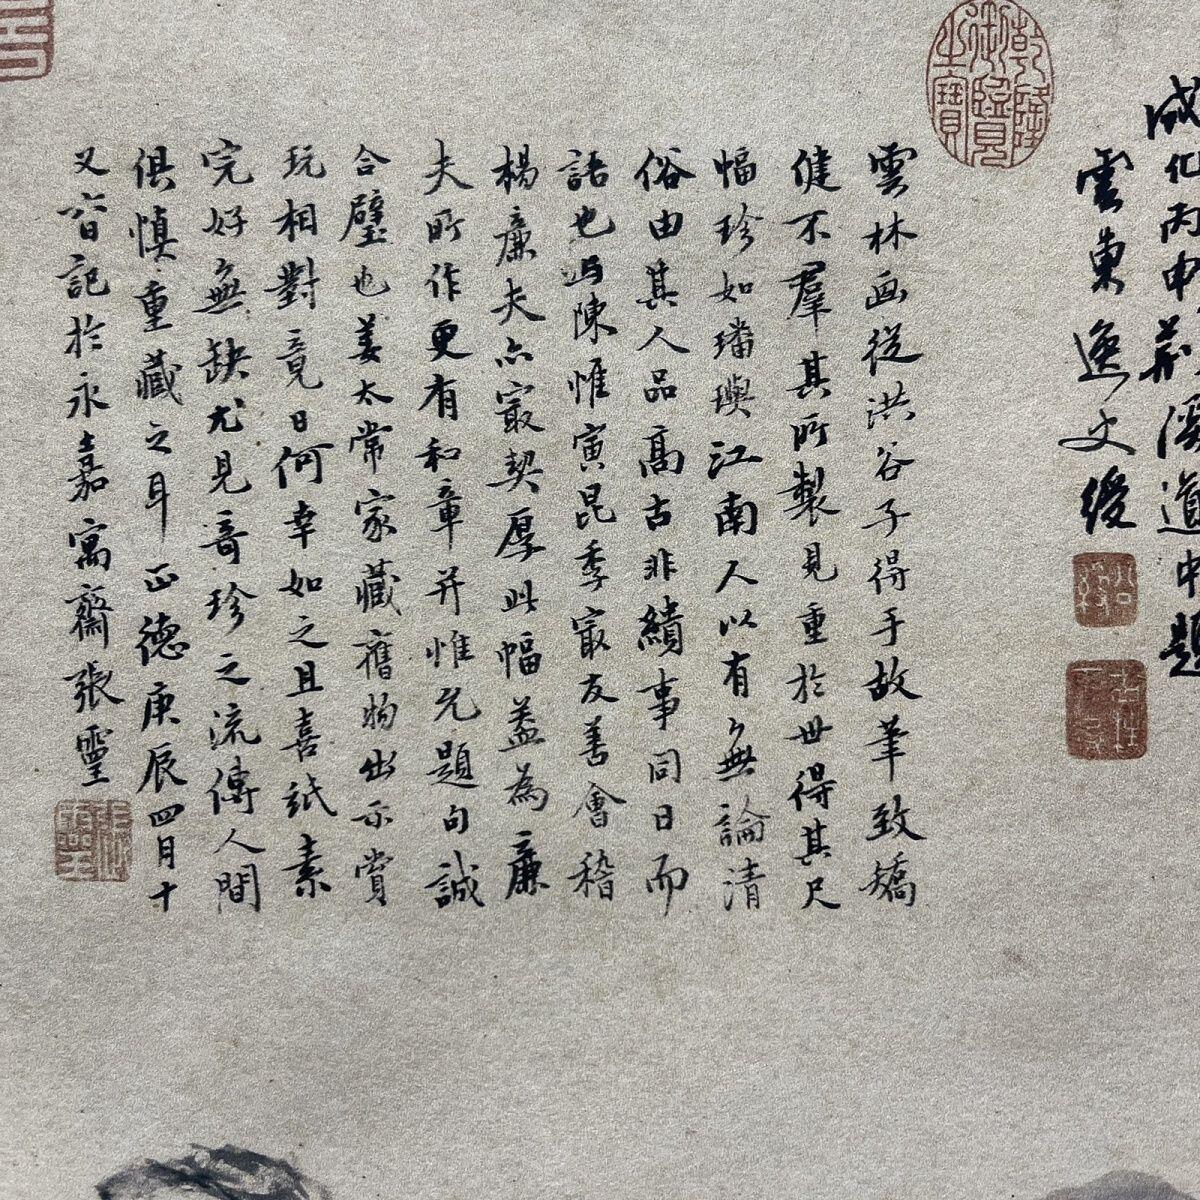 成化丙申荆溪道中題
雲東逸史綬
乾隆御覽之寶
雲林画從洪谷子得手故筆致矯
健不羣其所製見重於世得其尺
幅珍如璠璵江南人以有無論清
俗由其人品高古非繢事同日而
語也與陳惟寅昆季㝡友善會稽
楊廉夫亦㝡契厚此幅蓋為廉
夫所作更有和章并惟允題句誠
合璧也姜太常家藏舊物出示賞
玩相對竟日何幸如之且喜紙素
完好無缺尤見奇珍之流傳人間
俱慎重藏之耳正德庚辰四月十
又六日記於永嘉寓齋張靈
張靈